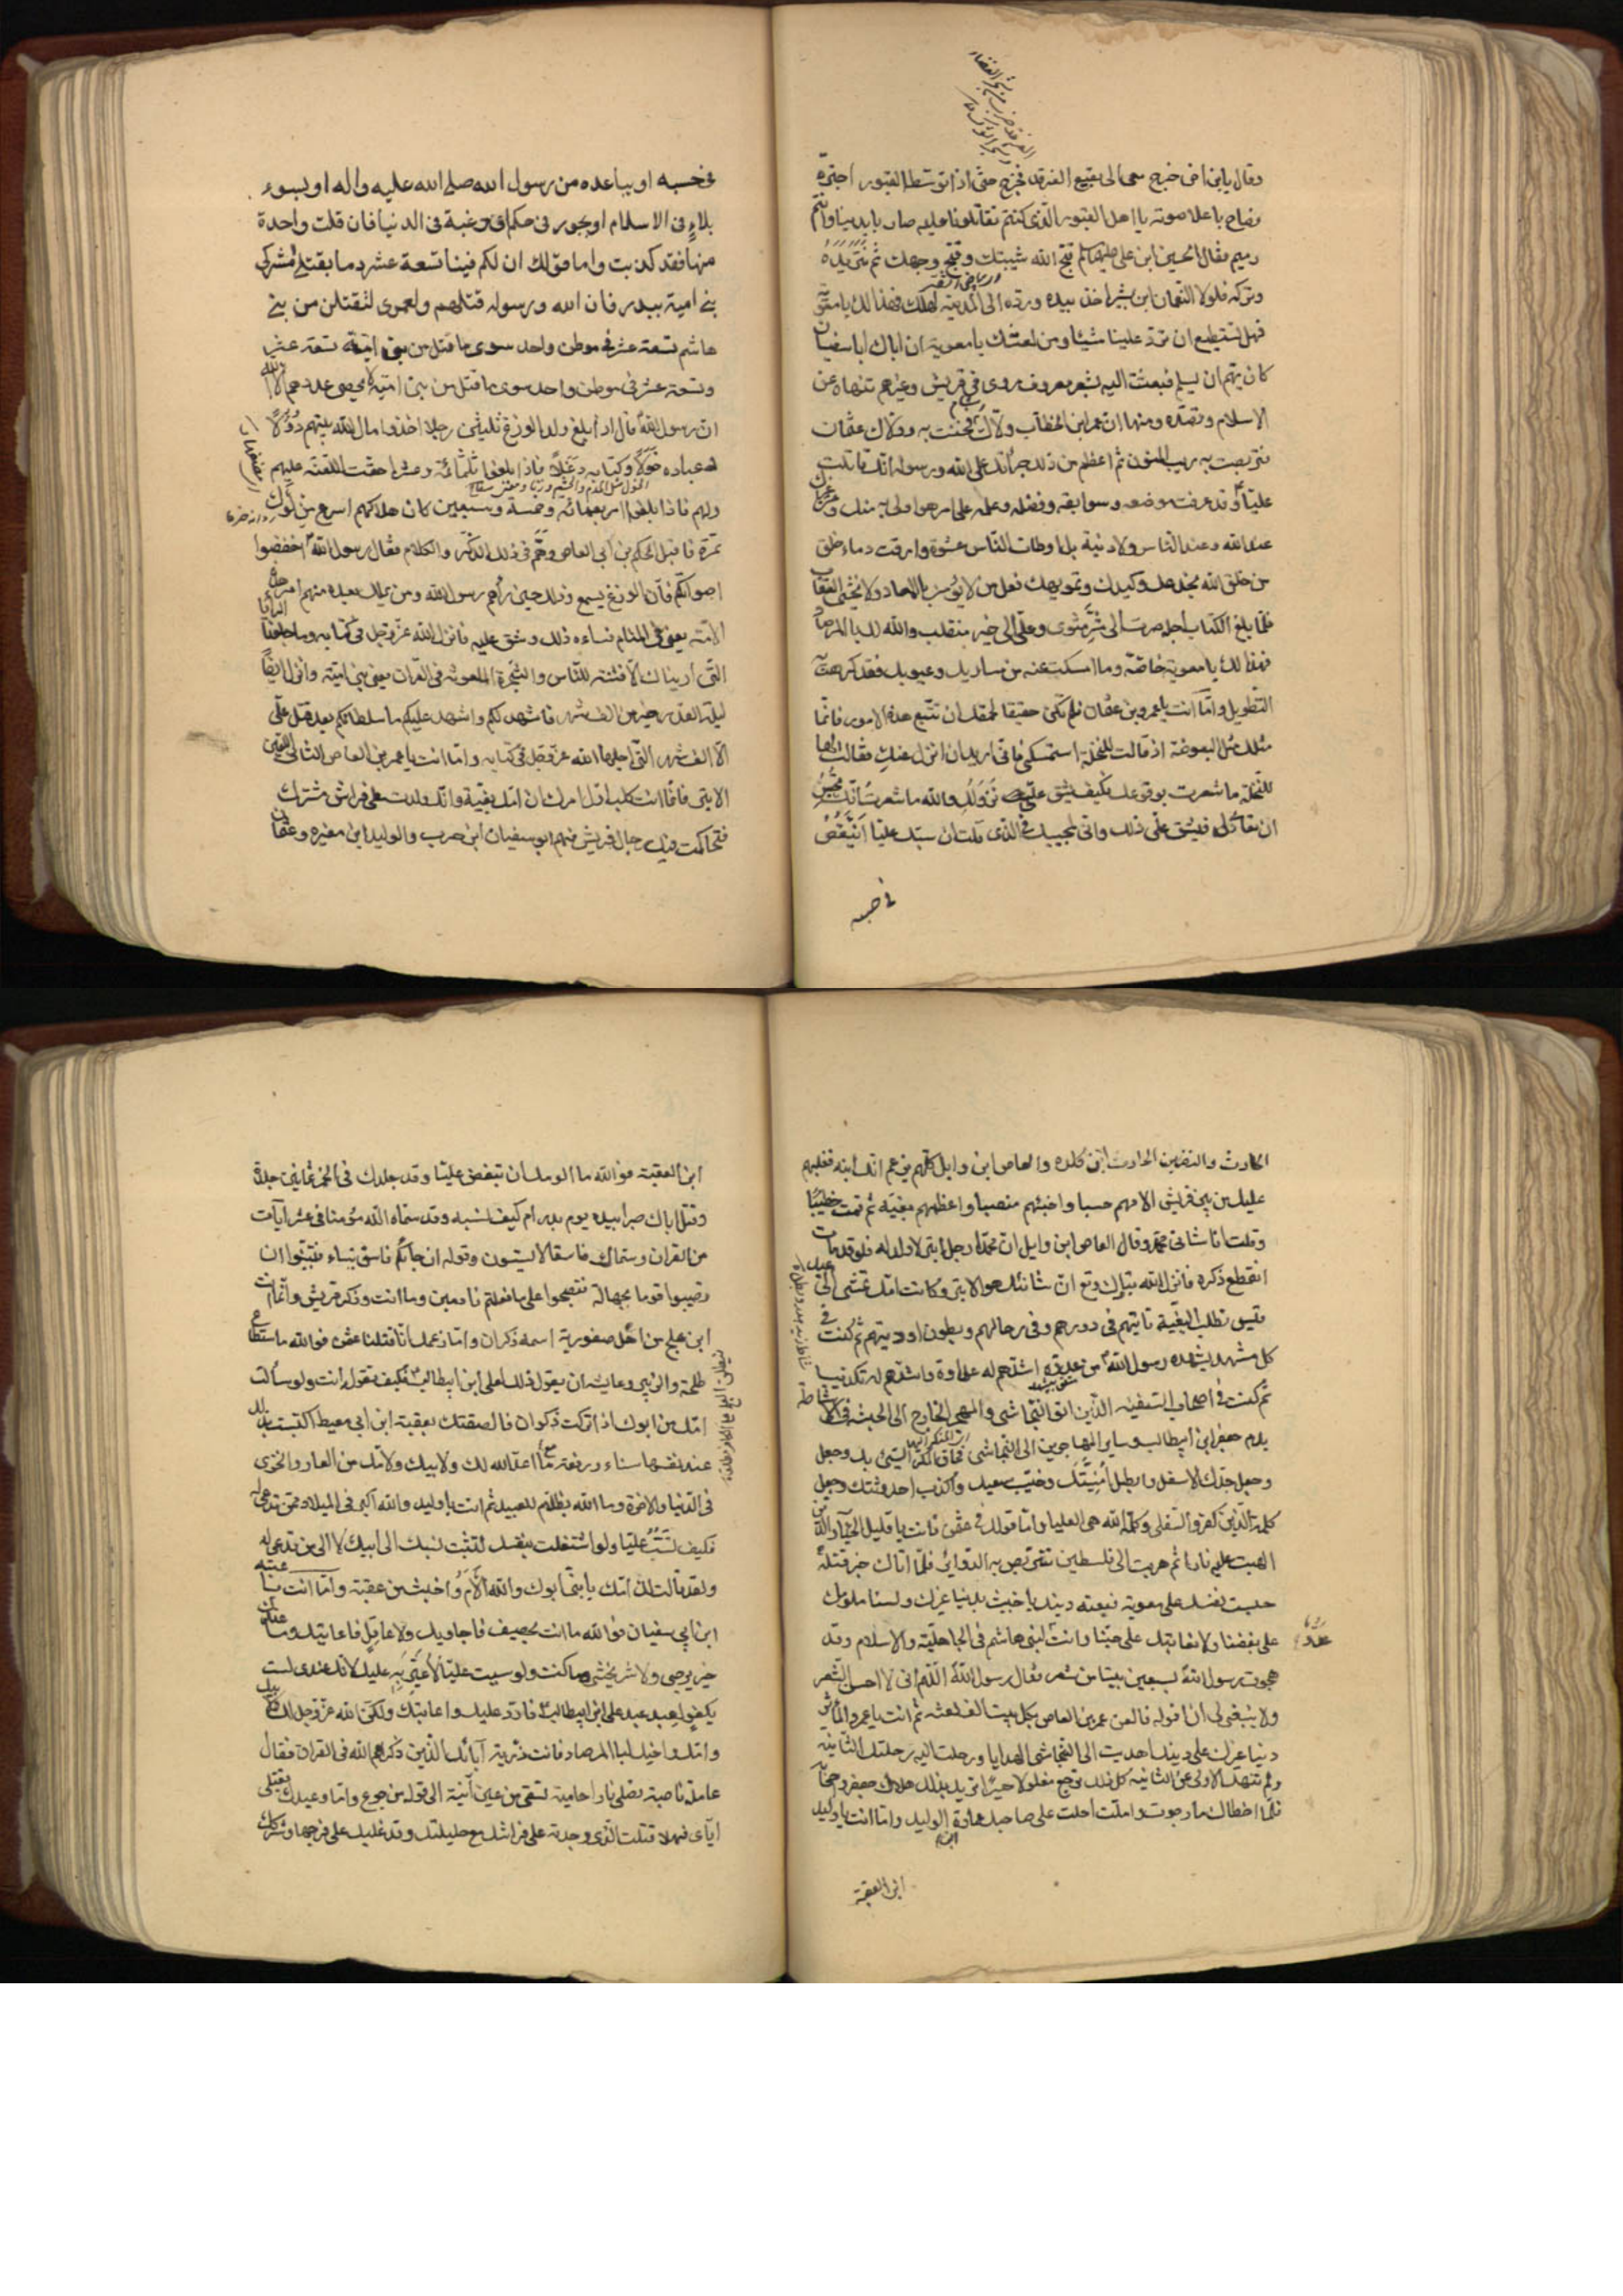 وقال يابن اخى خرج معى الى بقيع الغرقد فخرج حتى اذا توسط القبور اجتره
فصاح باعلا صوته يا اهل القبور الذى كنتم تقاتلونا عليه صار بايدينا وانتم
رميم فقال الحسين ابن على عليهما السلم قبح الله شيبتك وقبح وجهك ثم نتر يده
وتركه فلولا النعمان ابن بشير اخذ بيده ورده الى المدينه لهلك فهذا لك يا معوية
فهل تستطيع ان ترد علينا شيئا ومن لعنتك يا معوية ان اباك ابا سفيان
كان يهم ان يسلم فبعثت اليه بشعر معروف مروى فى قريش وغيرهم تنهاه عن
الاسلام وتصده ومنها ان عمر ابن الخطاب ولاك الشام فخنت به وولاك عثمان
فتربصت به ريب المنون ثم اعظم من ذلك جراتك على الله ورسوله انك قاتلت
عليا وقد عرفت موضعه وسوابقه وفضله وعلمه على امر هو اولى به منك ومن غيرك
عند الله وعند الناس ولا دنية بل اوطات الناس عشوة وارقت دماء خلق
من خلق الله بخدعك وكيدك وتمويهك فعل من لا يؤمن بالمعاد ولا يخشى العقاب
فلما بلغ الكتاب اجله صرت الى شر مثوى وعلى الى خير منقلب والله لك بالمرصاد
فهذا لك يا معوية خاصة وما امسكت عنه من مساويك وعيوبك فقد كرهت به
التطويل واما انت يا عمرو بن عثمان فلم تكن حقيقا لحمقك ان تتبع هذه الامور فانما
مثلك مثل البعوضة اذ قالت للنخلة استمسكى فانى اريد ان انزل عنك فقالت لها
النخلة ما شعرت بوقوعك فكيف يشق على نزولك والله ما شعرت انك تحسن
ان تعادى لى فيشق على ذلك وانى لمجيبك فى الذى قلت ان سبك عليا انتقص
فى حسبه
فى حسبه او يباعده من رسول الله صلى الله عليه واله او بسوء
بلاء فى الاسلام او بجور فى حكم او رغبة فى الدنيا فان قلت واحدة
منها فقد كذبت واما قولك ان لكم فينا تسعة عشر دما بقتلى مشركى
بنى امية ببدر فان الله ورسوله قتلهم ولعمرى لتقتلن من بنى
هاشم تسعة عشر فى موطن واحد سوى ما قتل من بنى امية تسعة عشر
وتسعة عشر فى موطن واحد سوى ما قتل من بنى امية لا يحصى عددهم الا الله
ان رسول الله قال اذا بلغ ولد الوزغ ثلثين رجلا اخذوا مال الله بينهم دولا
عباده خولا وكتابه دغلا فاذا بلغوا ثلثمائة وعشرا حقت اللعنة عليهم
ولهم فاذا بلغوا اربعمائة وخمسة وسبعين كان هلاكهم اسرع من لوك
تمرة فاقبل الحكم بن ابى العاص وهم فى ذلك الذكر والكلام فقال رسول الله اخفضوا
اصواتكم فان الوزغ يسمع وذلك حين راهم رسول الله ومن يملك بعده منهم امر هذه
الامة يعنى فى المنام فساءه ذلك وشق عليه فانزل الله عز وجل فى كتابه وما جعلنا الرؤيا
التى اريناك الا فتنة للناس والشجرة الملعونة فى القران يعنى بنى امية وانزل ايضا
ليلة القدر خير من الف شهر فاشهد لكم واشهد عليكم ما سلطانكم بعد قتل على
الا الف شهر التى اجلها الله عز وجل فى كتابه واما انت يا عمر بن العاص الشانى اللعين
الابتر فانما انت كلب اول امرك ان امك بغية وانك ولدت على فراش مشترك
فتحاكمت فيك رجال قريش منهم ابو سفيان ابن حرب والوليد ابن مغيره وعثمان
الحارث والنضر بن الحارث ابن كلده والعاص ابن وايل كلهم يزعم انك ابنه فغلبهم
عليك من بين قريش الامهم حسبا واخبثهم منصبا واعظمهم بغية ثم قمت خطيبا
وقلت انا شانى محمد وقال العاص ابن وايل ان محمدا رجل ابتر لا ولد له فلو قد مات
انقطع ذكره فانزل الله تبارك وتع ان شانئك هو الابتر وكانت امك تمشى الى عبد
قيس تطلب البغية تاتيهم فى دورهم وفى رحالهم وبطون اوديتهم ثم كنت فى
كل مشهد يشهده رسول الله من عدوه اشدهم له عداوة واشدهم له تكذيبا
ثم كنت فى اصحاب السفينة الذين اتوا النجاشى والمهجر الخارج الى الحبشه فى الاشاطة
بدم جعفر ابن ابيطالب وساير المهاجرين الى النجاشى فحاق المكر السيئ بك وجعل
وجعل جدك الاسفل وابطل امنيتك وخيب سعيك واكذب احدوثتك وجعل
كلمة الذين كفروا السفلى وكلمة الله هى العليا واما قولك فى عثمن فانت يا قليل الحياء والدين
الهبت عليه نارا ثم هربت الى فلسطين تتربص به الدوائر فلما اتاك خبر قتله
حبست نفسك على معوية فبعته دينك يا خبيث بدنيا غيرك ولسنا نلومك
على بغضنا ولا نعاتبك على حبنا وانت لبنى هاشم فى الجاهلية والاسلام وقد
عدو
هجوت رسول الله بسبعين بيتا من شعر فقال رسول الله اللهم انى لا احسن الشعر
ولا ينبغى لى ان اقوله فالعن عمر بن العاص بكل بيت الف لعنة ثم انت يا عمرو المؤثر
دنيا غيرك على دينك اهديت الى النجاشى الهدايا ورحلت اليه رحلتك الثانية
ولم تنهك الاولى عن الثانية كل ذلك ترجع مغلولا حسيرا تريد بذلك هلاك جعفر واصحابه
فلما اخطاك ما رجوت واملت احلت على صاحبك عمارة ابن الوليد واما انت يا وليد
ابن العقبة
ابن العقبة فو الله ما الومك ان تبغض عليا وقد جلدك فى الخمر ثمانين جلدة
وقتل اباك صبرا بيده يوم بدر ام كيف تسبه وقد سماه الله مؤمنا فى عشر آيات
من القران وسماك فاسقا لا يستوون وقوله ان جاءكم فاسق بنباء فتبينوا ان
تصيبوا قوما بجهالة فتصبحوا على ما فعلتم نادمين وما انت وذكر قريش وانما انت
ابن علج من اهل صفورية اسمه ذكوان واما زعمك انا قتلنا عثمن فو الله ما استطاع
طلحة والزبير وعايشة ان يقول ذلك لعلى ابن ابيطالب فكيف تقوله انت ولو سالت
امك من ابوك اذ تركت ذكوان فالصقتك بعقبة ابن ابى معيط اكتست بذلك
عند نفسها سناء ورفعة مع ما اعد الله لك ولابيك ولامك من العار والخزى
فى الدنيا والاخرة وما الله بظلام للعبيد ثم انت يا وليد والله اكبر فى الميلاد ممن تدعى له
فكيف تسب عليا ولو اشتغلت بنفسك لتثبت نسبك الى ابيك لا الى من تدعى له
ولقد قالت لك امك يا بنى ابوك والله الام واخبث من عقبة واما انت يا عتبه
ابن ابى سفيان فو الله ما انت بحصيف فاجاوبك ولا عاقل فاعاتبك وما عندك
خير يرجى ولا شر يخشى وما كنت ولو سببت عليا لاعير به عليك لانك عندى لست
بكفو لعبد عبد على ابن ابيطالب فارد عليك واعاتبك ولكن الله عز وجل لك ولابيك
وامك واخيك لبا المرصاد فانت ذرية آبائك الذين ذكرهم الله فى القران فقال
عاملة ناصبة تصلى نارا حامية تسقى من عين آنية الى قوله من جوع واما وعيدك بقتلى
اياى فهلا قتلت الذى وجدته على فراشك مع حليلتك وقد غلبك على فرجها وشركك